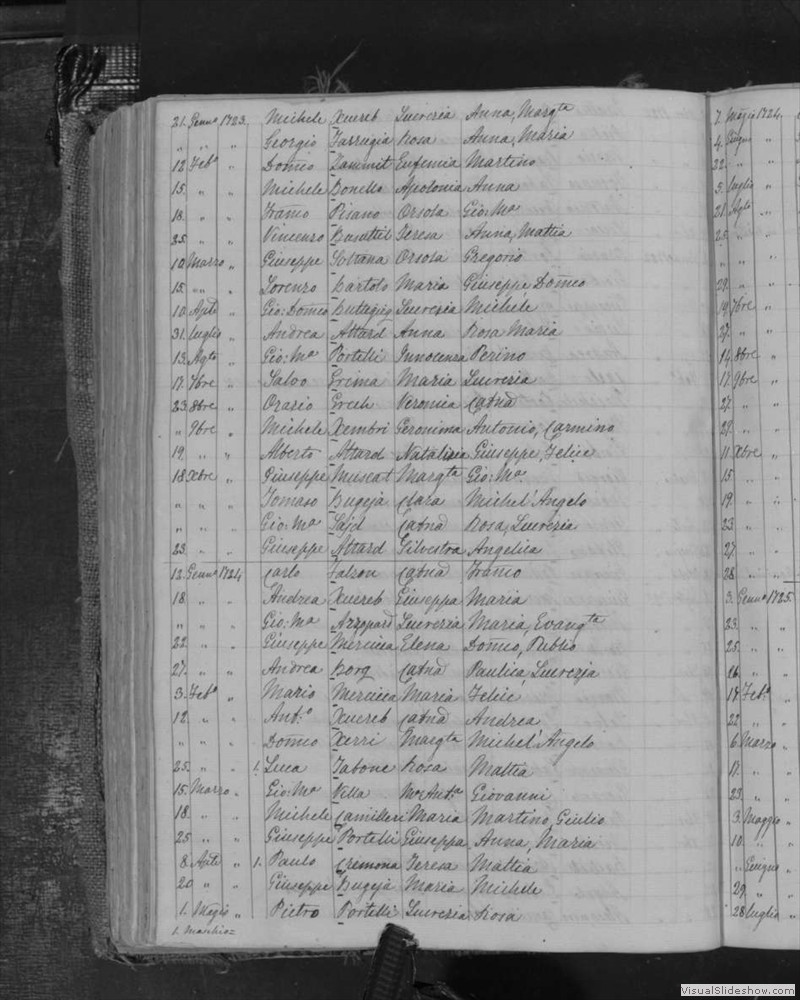 21. Genn.o 1723. Michele Xuereb Lucrezia Anna, Marg.ta
" " " Georgio Farrugia Rosa Anna, Maria
12 Feb.o " Dom̃co Zammit Eufemia Martino
15. " " Michele Bonello Apolonia Anna
18. " " Franc̃o Pisano Orsola Gio: M.a
25. " " Vincenzo Busuttil Teresa Anna, Mattia
10 Marzo " Giuseppe Sciberana Orsola Gregorio
15. " " Lorenzo Bartolo Maria Giuseppe Dom̃co
10 Aple " Gio: Dom̃co Buttigieg Lucrezia Michele
31. luglio " Andrea Attard Anna Rosa Maria
13. Agto " Gio: M.a Portelli Innocenza Perino
17. 7bre " Salvo Grima Maria Lucrezia
23. 8bre " Orazio Grech Veronica Catña
" 9bre " Michele Xembri Geronima Antonio, Carmino
19. " " Alberto Attard Natalizia Giuseppe, Felice
18 Xbre " Giuseppe Muscat Marg.ta Gio: M.a
" " " Tomaso Bugeja Clara Michel'Angelo
" " " Gio: M.a Sajd Catña Rosa, Lucrezia
23. " " Giuseppe Attard Silvestra Angelica
12. Genn.o 1724 Carlo Falzon Catña Franc̃o
18. " " Andrea Xuereb Giuseppa Maria
" " " Gio: M.a Azzopard Lucrezia Maria, Evang.ta
22. " " Giuseppe Mercieca Elena Dom̃co, Publio
27. " " Andrea Borg Catña Paulica, Lucrezia
3. Feb.o " Mario Mercieca Maria Felice
12. " " Ant.o Xuereb Catña Andrea
" " " Dom̃co Xerri Marg.ta Michel'Angelo
25. " " 1. Luca Tabone Rosa Mattia
15. Marzo " Gio: M.a Vella M.a Ant.a Giovanni
18. " " Michele Camilleri Maria Martino, Giulio
25 " " Giuseppe Portelli Giuseppa Anna, Maria
8. Aple " 1. Paulo Cremona Teresa Mattia
20 " " Giuseppe Bugeja Maria Michele
1. Maggio " Pietro Portelli Lucrezia Rosa
1. Maschio=
7. Maggio 1724.
4. Giugno "
22. " "
3. luglio "
21. Agto "
25. " "
" " "
29. " "
19. 7bre "
27. " "
14. 8bre "
17. 9bre "
27. " "
29. " "
11. Xbre "
15. " "
19. " "
23 " "
27. " "
28. " "
3. Genn.o 1725.
23. " "
25. " "
26. " "
17. Feb.o "
22. " "
6. Marzo "
17. " "
23. " "
3. Maggio "
10. " "
" Giugno "
29. " "
28 luglio "
VisualSlideshow.com